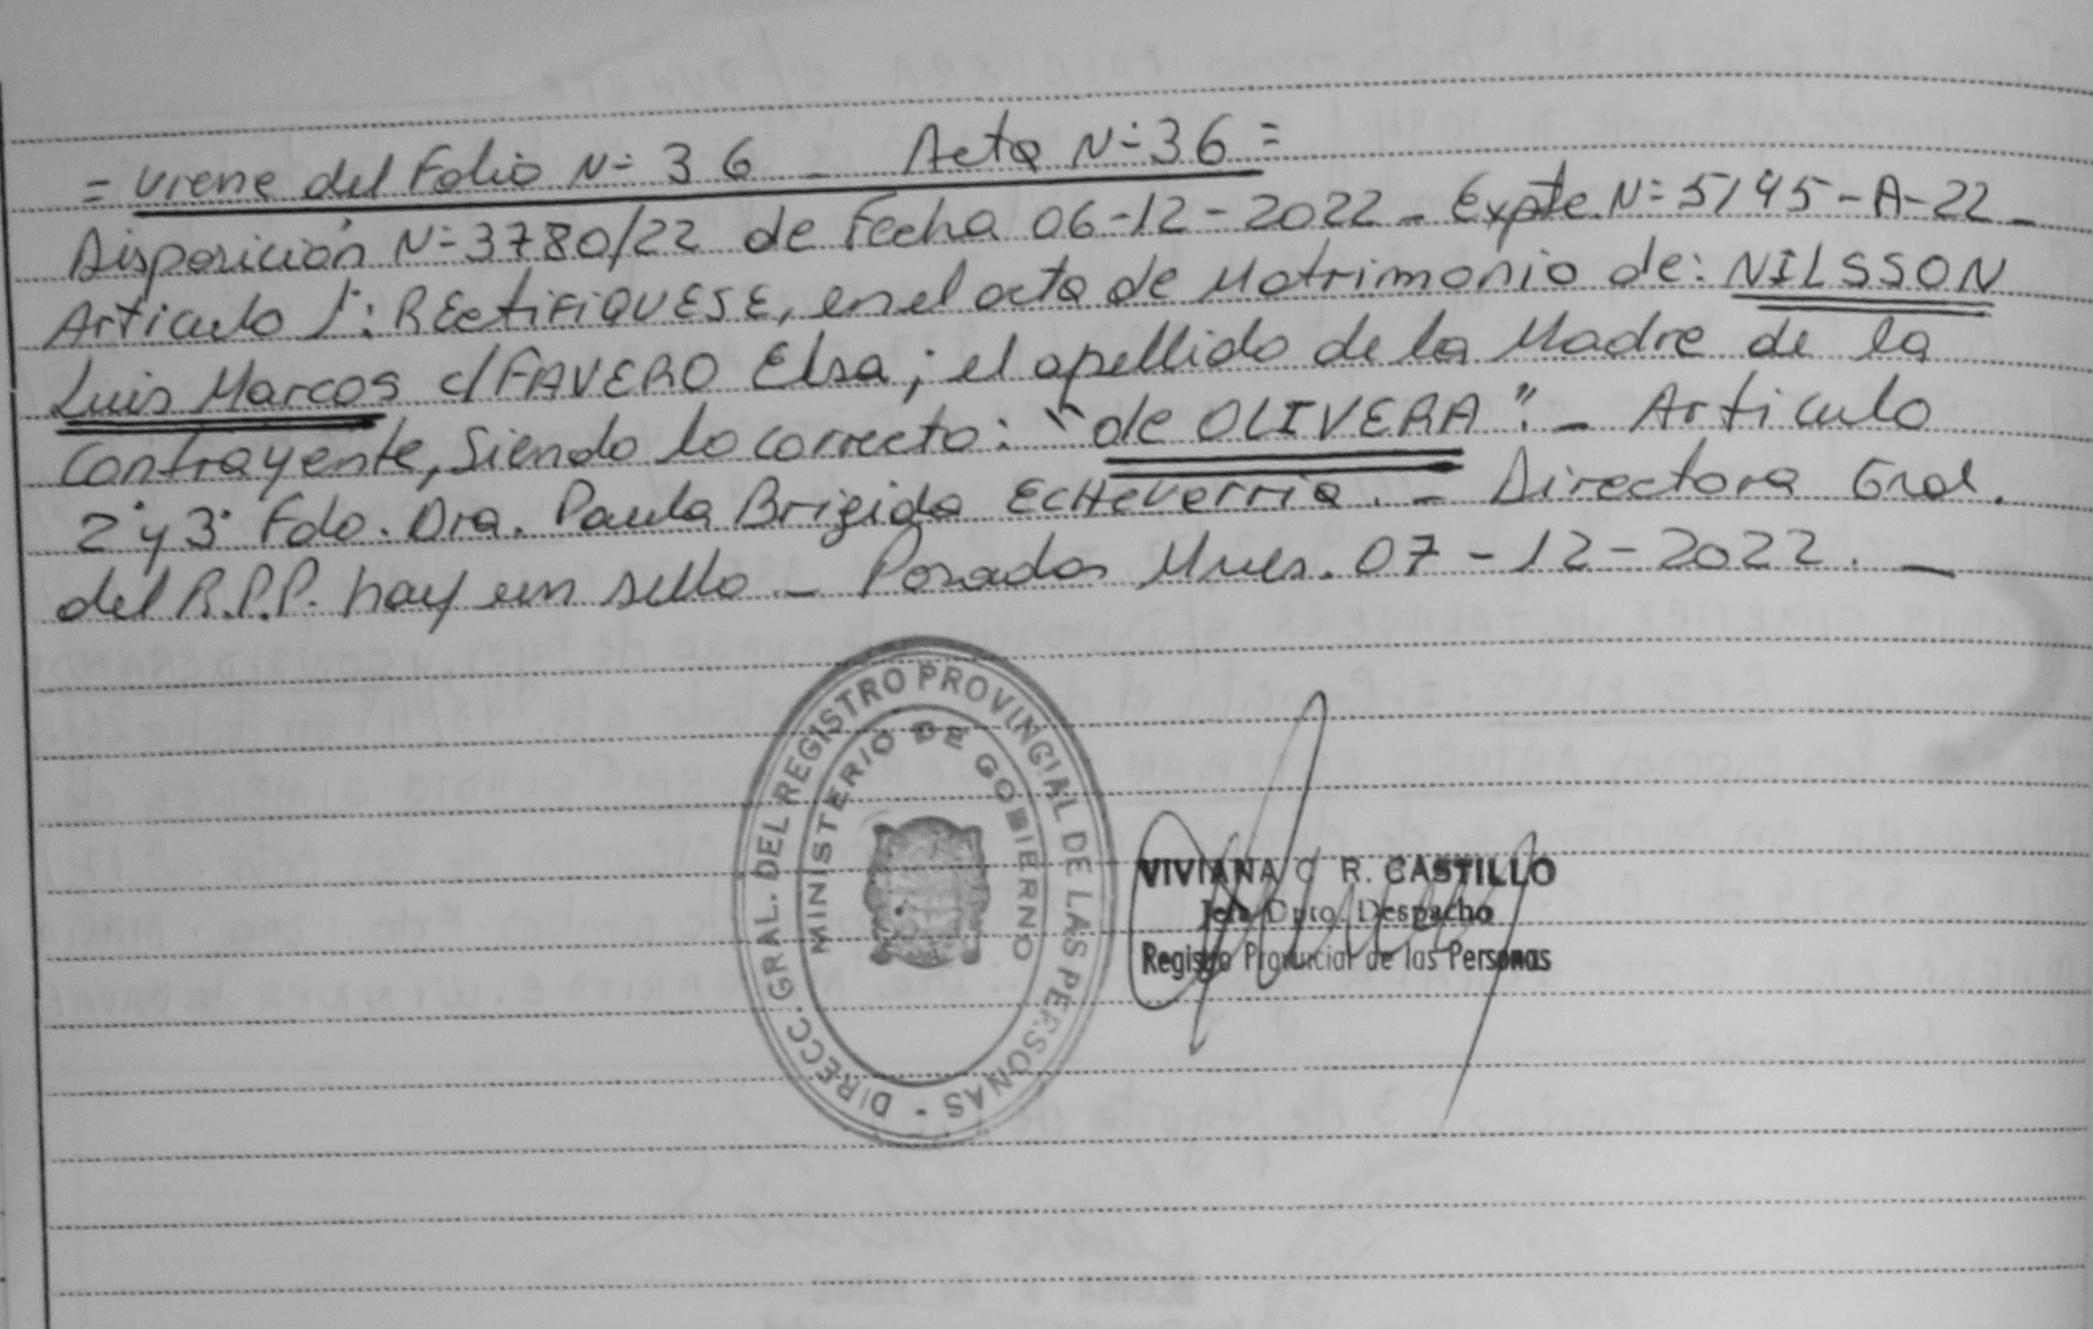 = Viene del Folio N° 36 - Acta N° 36 =
Disposición N° 3780/22 de Fecha 06-12-2022 - Expte. N° 5195-A-22 -
Articulo 1°: REctiFiQUESE, en el acta de Matrimonio de: NILSSON
Luis Marcos c/ FAVERO Elsa; el apellido de la Madre de la
Contrayente, Siendo lo correcto: "de OLIVERA". - Articulo
2° y 3° Fdo. Dra. Paula Brigida EcHeverria. - Directora Gral.
del R.P.P. hay un sello - Posadas Mnes. 07-12-2022. -
DIRECC. GRAL. DEL REGISTRO PROVINCIAL DE LAS PERSONAS -
MINISTERIO DE GOBIERNO
VIVIANA C R. CASTILLO
Jefa Dpto. Despacho
Registro Provincial de las Personas